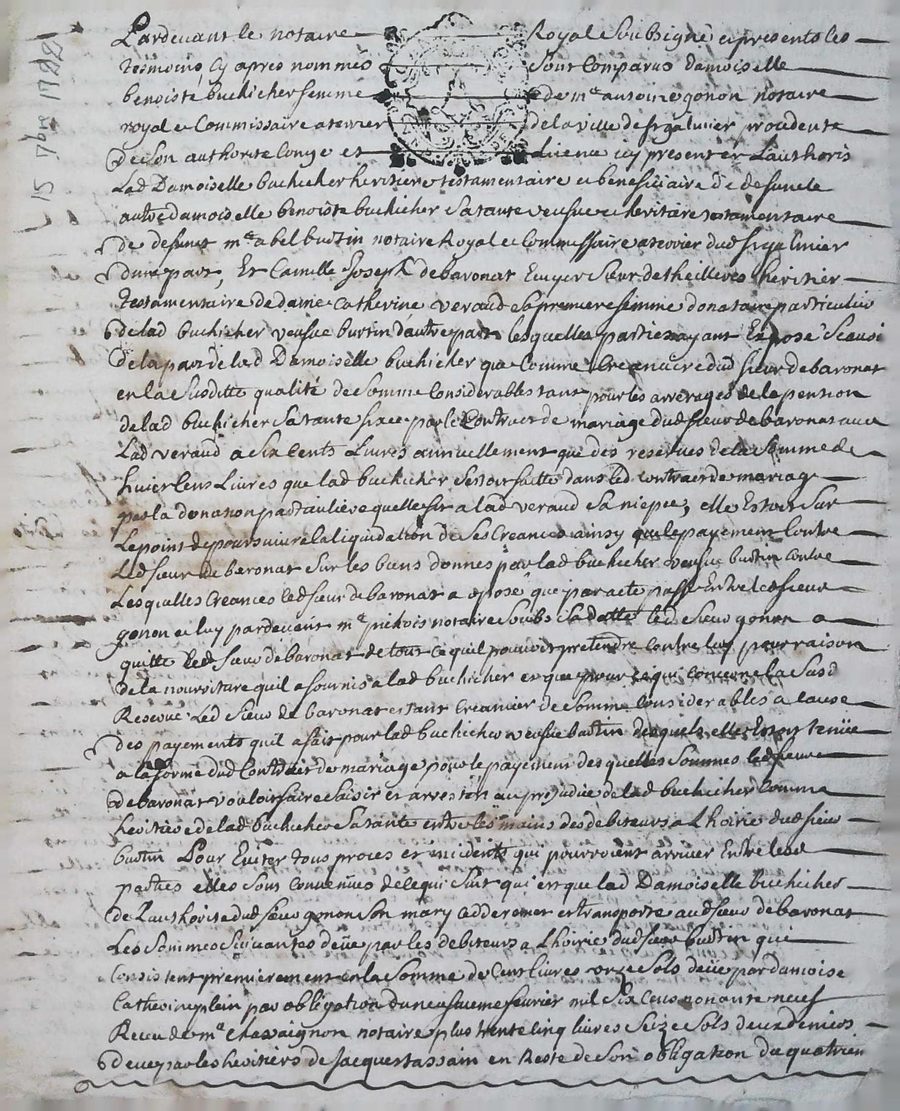 15 7bre 1722
Pardevant le notaire Royal Soubsigné et presents les
tesmoins cy apres nommés Sont Comparus damoiselle
benoiste buchicher femme de me antoine gonon notaire
royal et Commissaire a terrier de la ville de St galmier procedente
de Son authorité Conge et Licence icy present et Lauthoris
Lad Damoiselle buchicher heritiere testamentaire et beneficiaire de defuncte
autre damoiselle benoiste buchicher Sa tante veufve et heritiere testamentaire
de defunct me abel burtin notaire Royal et Commissaire a terrier dud St galmier
dune part, Et Camille Joseph de baronat Ecuyer Sieur de theilleres heritier
testamentaire de dame Catherine veraud Sa premiere femme donataire particuliere
de lad buchicher veufve burtin dautre part lesquelles parties ayant Exposé Scavoir
de la part de lad Damoiselle buchicher que Comme Creanciere dud Sieur de baronat
en la Susditte qualité de Somme Considerables tant pour les arrerages de la pention
de lad buchicher Sa tante fixee par le Contract de mariage dud Sieur de baronat avec
Lad veraud a Six Cents Livres annuellement que des reserves de la Somme de
huict Cens Livres que lad buchicher Sestoit faitte dans led contract de mariage
par la donation particuliere quelle fit a lad veraud Sa niepce, elle Estoit Sur
Le point de poursuivre la liquidation de Ses Creances ainsy que le payement Contre
Led Sieur de baronat Sur les biens donnes par lad buchicher veufve burtin Contre
Lesquelles Creances led Sieur de baronat a oposé que par acte passé Entre led Sieur
gonon et luy pardevant me notaire Soubs Sa datte led Sieur gonon a
quitté led Sieur de baronat de tout ce quil pouvoit pretendre Contre luy pour raison
de la nourriture quil a fournis a lad buchicher et que pour ce qui Concerne la Susd
Reserve Led Sieur de baronat estant Creancier de Somme Considerables a Cause
des payements quil a fait pour lad buchicher veufve burtin desquels elle Estoit tenüe
a la forme dud Contract de mariage pour le payement desquelles Sommes led Sieur
de baronat vouloit faire Saisir et arrester au prejudice de lad buchicher Comme
heritiere de lad buchicher Sa tante entre les mains des debiteurs a Lhoirie dud Sieur
burtin Pour Eviter tous proces et incidents qui pourroient arriver Entre lesd
parties elles Sont Convenües de ce qui Suit qui est que lad Damoiselle buchicher
de Lauthorité dud Sieur gonon Son mary a cedé remet et transporte aud Sieur de baronat
Les Sommes Suivantes deüe par les debiteurs a Lhoirie dud Sieur burtin qui
Consistent premierement en la Somme de Cent livres onze Sols deüe par damoise
Catherine plein par obligation du neufvieme fevrier mil Six Cens nonante neuf
Receu de me Chassaignon notaire plus trente Cinq livres Seize Sols deux deniers
deue par les heritiers de Jacques tassain en Reste de Son obligation du quatriem